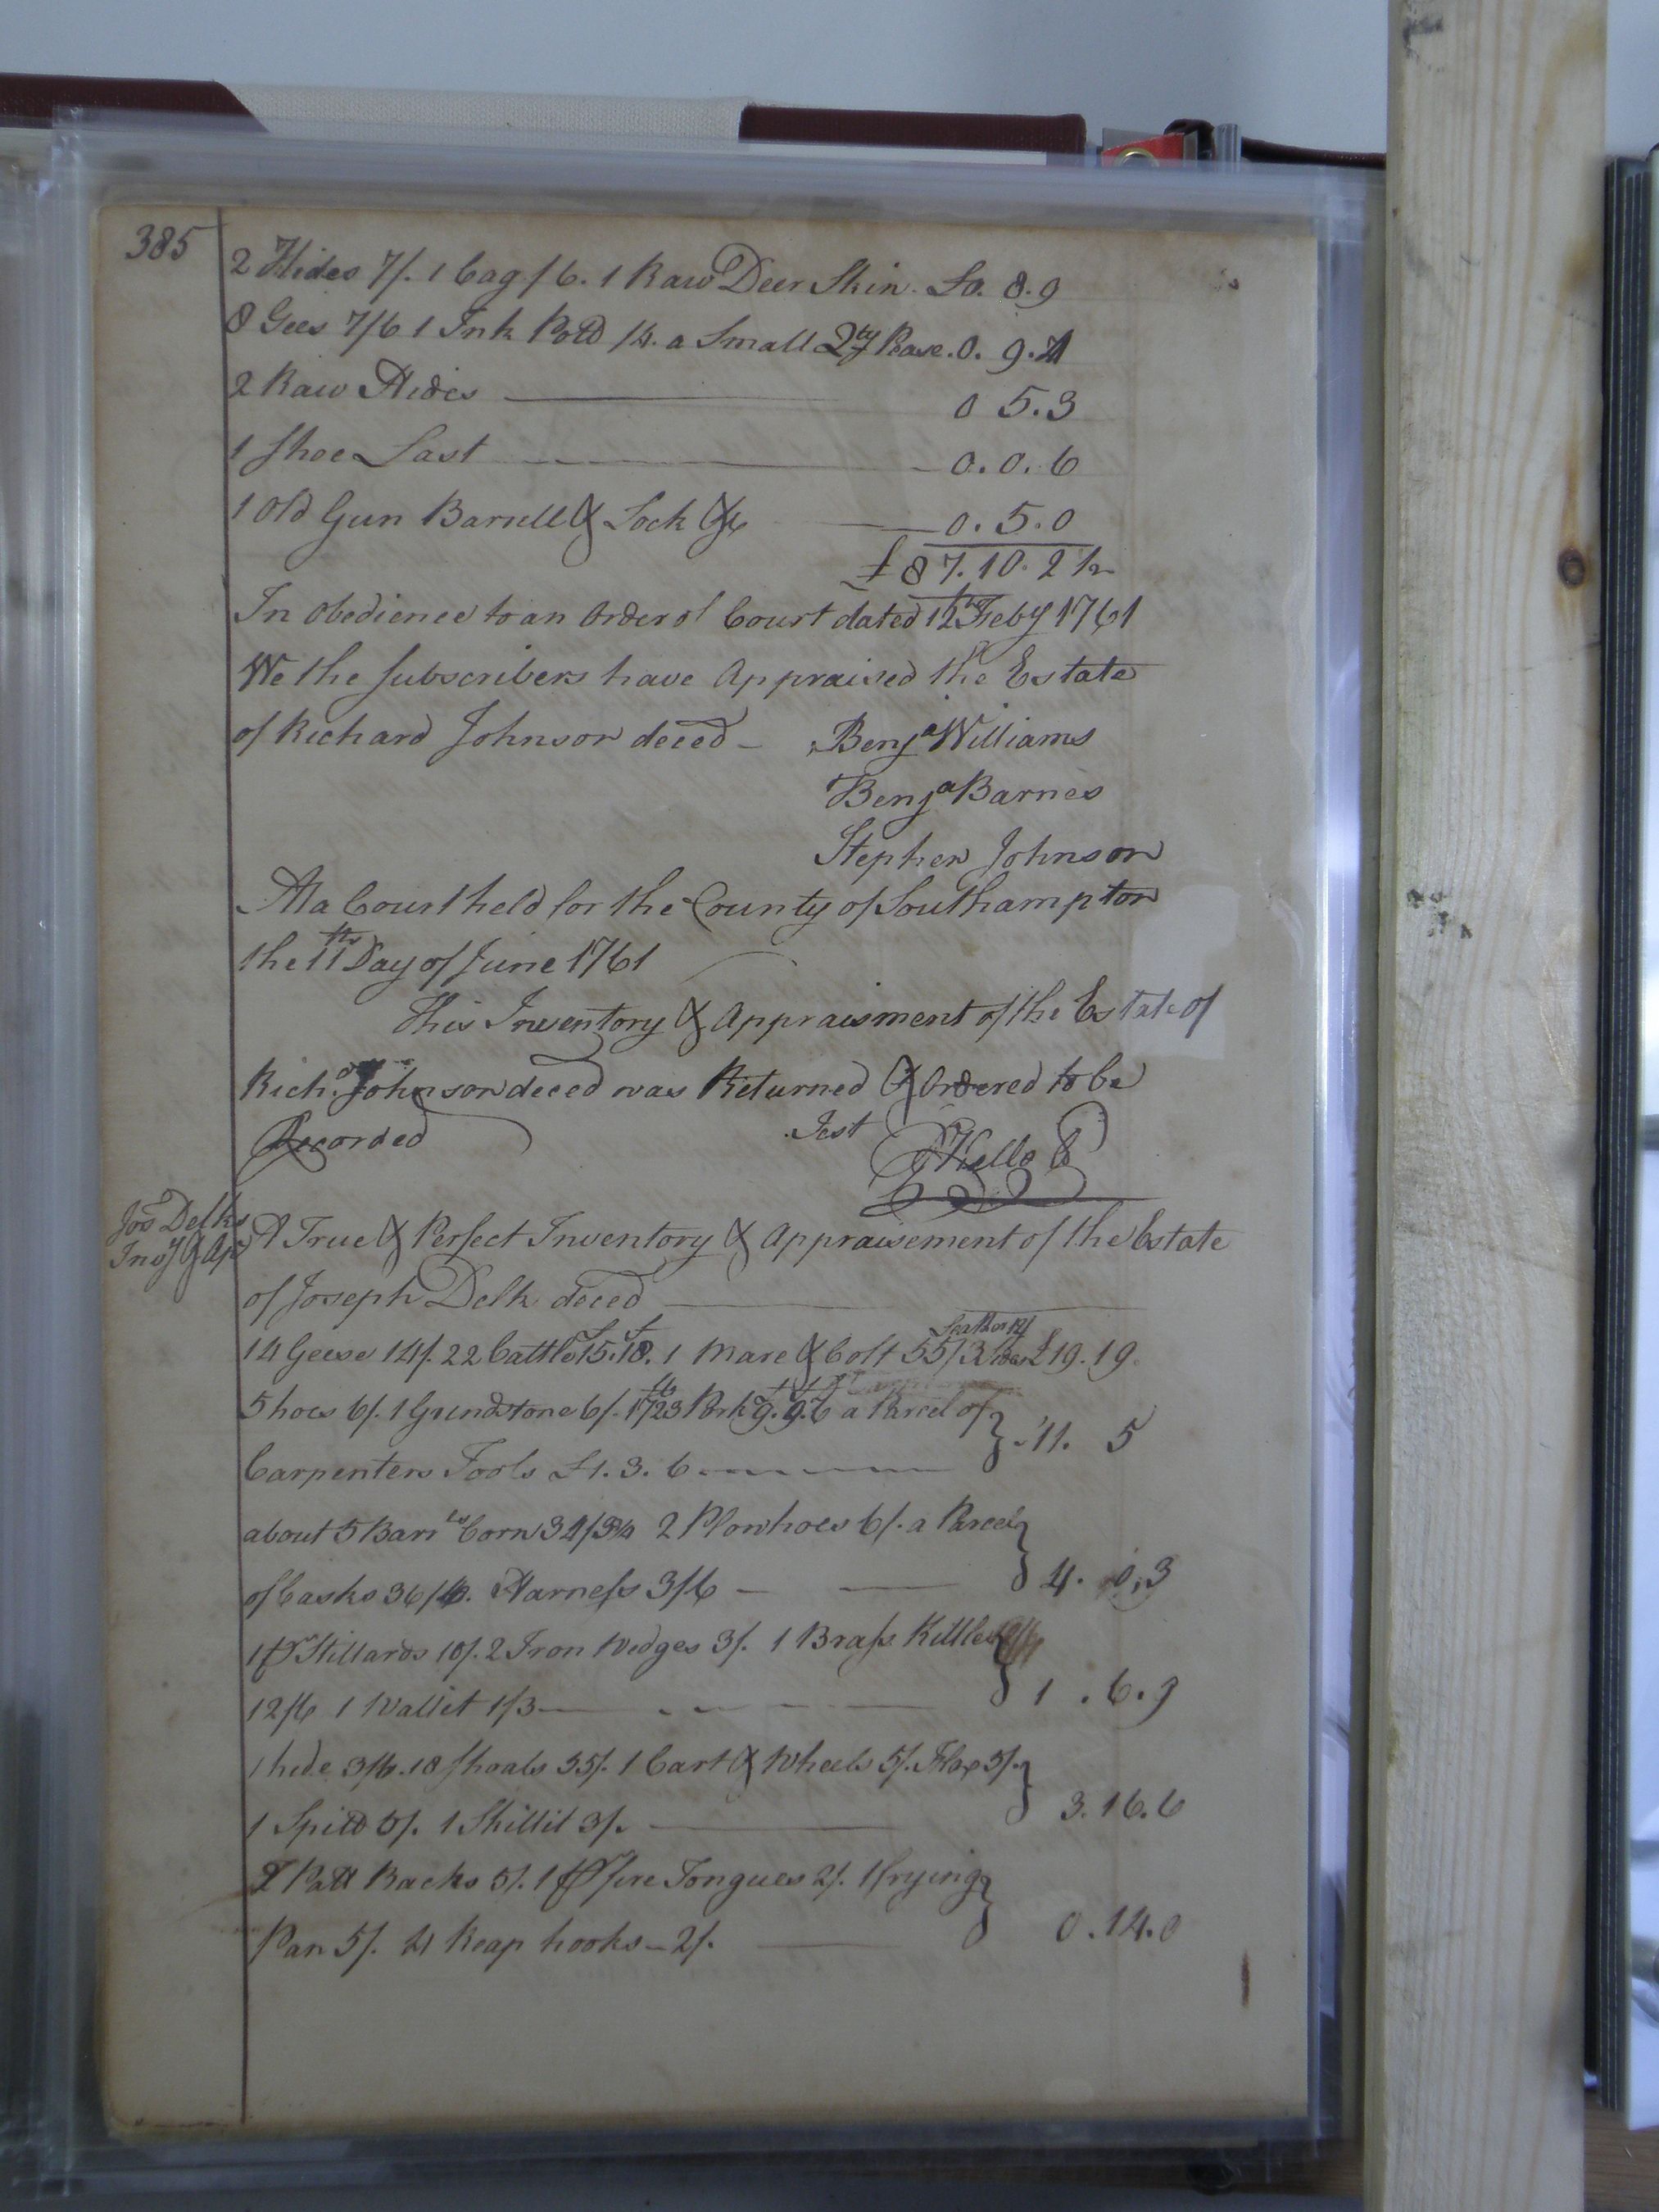 385
2 Hides 7/. 1 bag /6. 1 Raw Deer Skin. £0. 8.9
8 Gees 7/6 1 Ink Pott /4. a Small Qty Pease. 0. 9.
2 Raw Hides 0 5.3
1 Shoe Last 0.0.6
1 Old Gun Barrell & Lock &c 0.5.0
£87.10.2½
In Obedience to an Order of Court dated 12th Feby 1761
We the Subscribers have Appraised the Estate
of Richard Johnson deced - Benja Williams
Benja Barnes
Stephen Johnson
At a Court held for the County of Southampton
the 11th Day of June 1761
This Inventory & Appraisment of the Estate of
Richd Johnson deced was Returned & Ordered to be
Recorded Test
Kello
Jos Delks
Invy & Apt
A True & Perfect Inventory & Appraisement of the Estate
of Joseph Delk deced
Leather 12/
14 Geese 14/. 22 Cattle £15.18. 1 Mare & Colt 55/ 3 £19.19.
5 hoes 6/. 1 Grindstone 6/. lb Pork £9.9.6 a Parcel of
Carpenters Tools £1.3.6 11. 5
about 5 Barrls Corn 34/ 2 Plowhoes 6/. a Parcel
of Casks 36/ Harness 3/6 4. 0.3
1 pr Stillards 10/. 2 Iron Wedges 3/. 1 Brass Kittle
12/6 1 Wallit 1/3 1.6.9
1 hide 3/6. 10 Shoals 35/. 1 Cart & Wheels 5/. Flax 5/.
1 Spitt 5/. 1 Skillit 3/. 3.16.6
2 Pott Racks 5/. 1 pr fire Tongues 2/. 1 frying
Pan 5/. 4 Reap hooks - 2/. 0.14.0